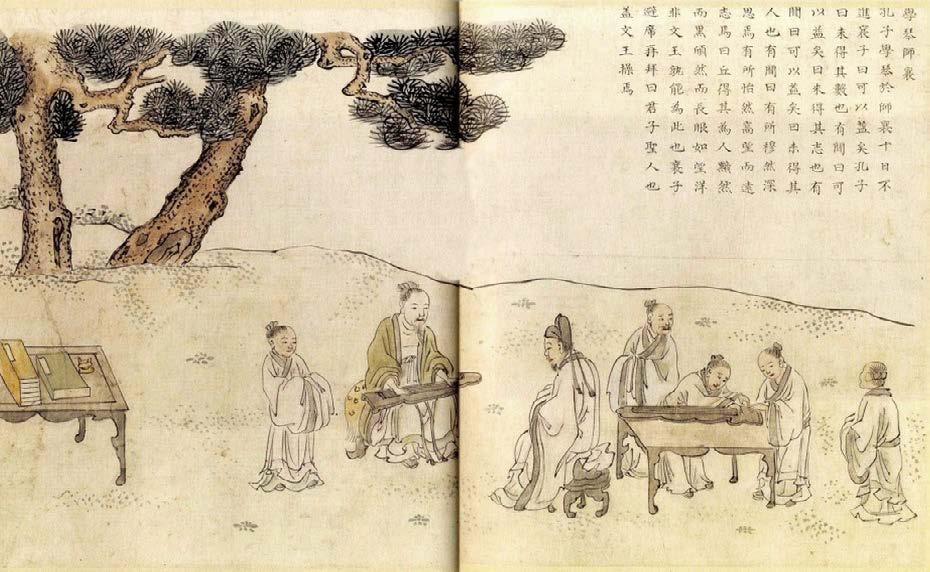 學琴師襄
孔子學琴於師襄十日不
進襄子曰可以益矣孔子
曰未得其數也有間曰可
以益矣曰未得其志也有
間曰可以益矣曰未得其
人也有間曰有所穆然深
思焉有所怡然高望而遠
志焉曰丘得其為人黯然
而黑頎然而長眼如望洋
非文王孰能為此也襄子
避席再拜曰君子聖人也
蓋文王操焉